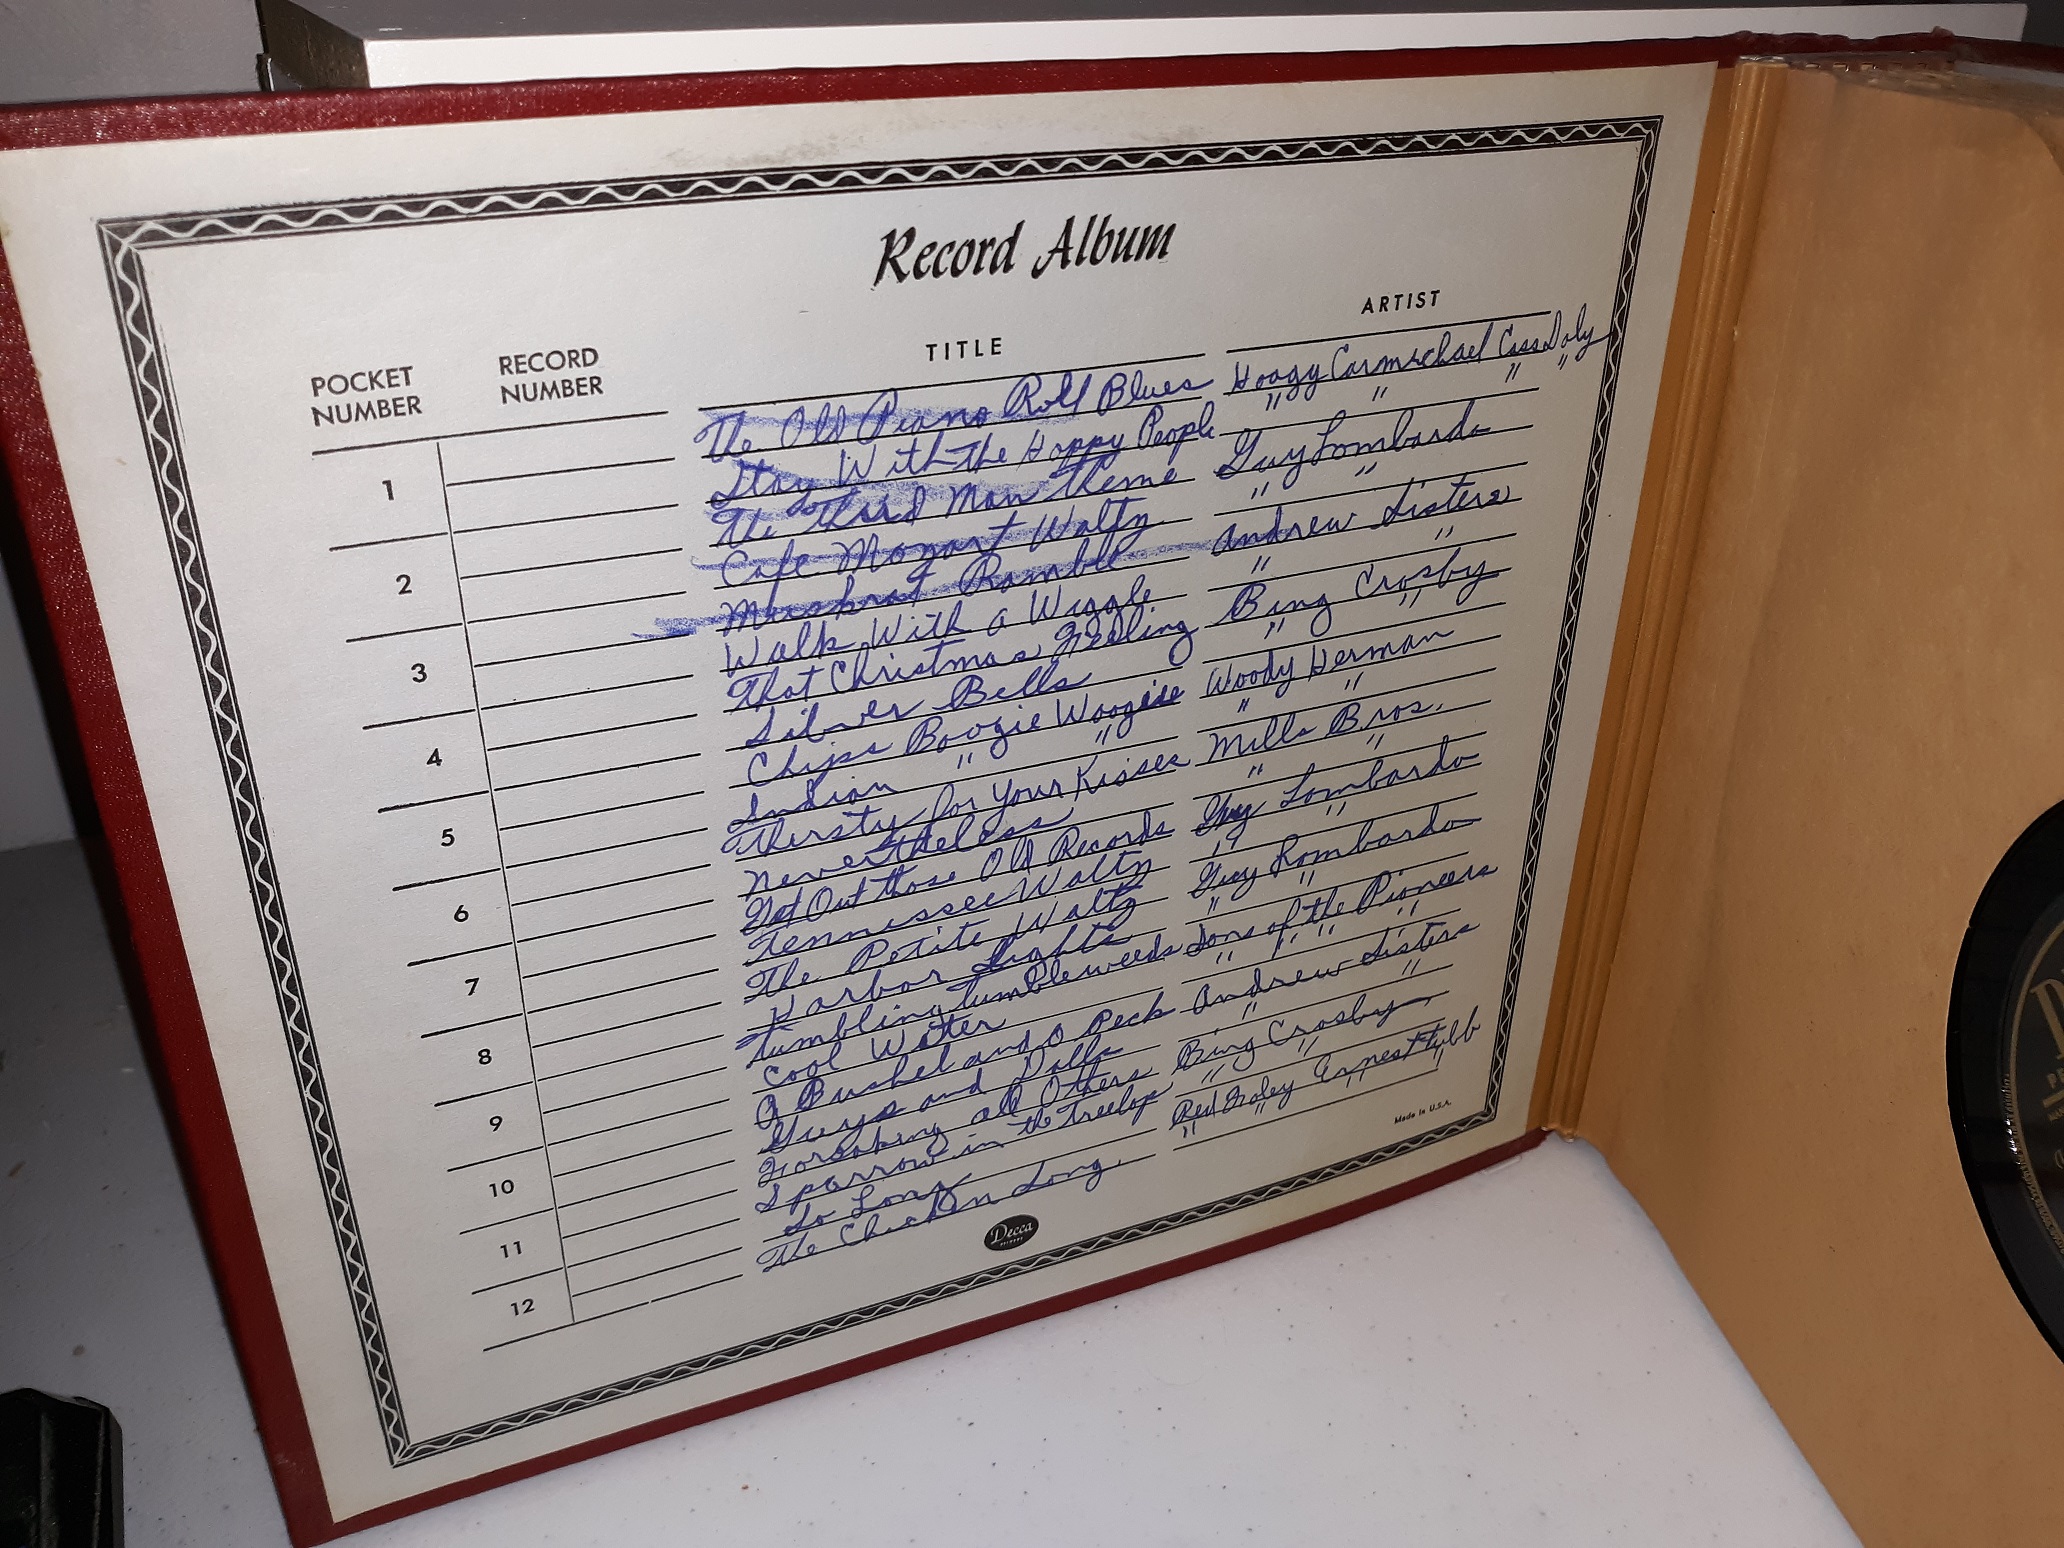 Record Album
POCKET NUMBER RECORD NUMBER TITLE ARTIST
The Old Piano Roll Blues Hoagy Carmichael Cass Daly
1 Stay With the Happy People " " " "
The third Man Theme Guy Lombardo
2 Cafe Mozart Waltz " "
Muskrat Ramble Andrew Sisters
3 Walk With a Wiggle " "
That Christmas Feeling Bing Crosby
4 Silver Bells " "
Chips Boogie Woogie Woody Herman
5 Indian " " " "
Thirsty for Your Kisses Mills Bros.
6 Nevertheless " "
Get Out those Old Records Guy Lombardo
7 Tennessee Waltz " "
The Petite Waltz Guy Lombardo
8 Harbor Lights " "
Tumbling tumbleweeds Sons of the Pioneers
9 Cool Water " " " "
A Bushel and a Peck Andrew Sisters
10 Guys and Dolls " "
Forsaking all Others Bing Crosby
11 Sparrow in the Treetop " "
So Long Red Foley Ernest Tubb
12 The Chicken Song. " " " "
Made in U.S.A.
Decca